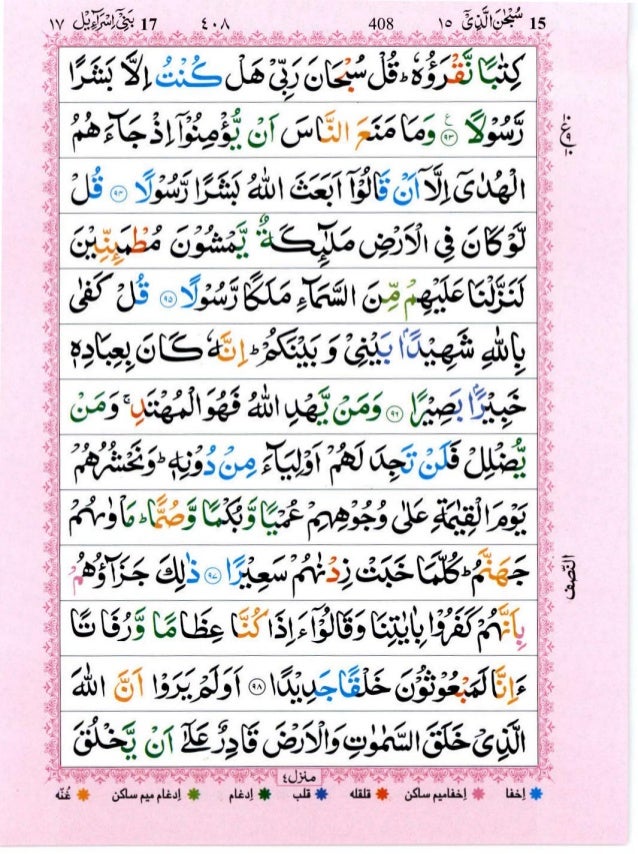 سُبْحٰنَ الَّذِیْۤ ١٥ 15 408 ٤٠٨ بَنِیْۤ اِسْرَآءِیْل 17 ١٧
كِتٰبًا نَّقْرَؤُهٗ ؕ قُلْ سُبْحَانَ رَبِّیْ هَلْ كُنْتُ اِلَّا بَشَرًا
رَّسُوْلًا ۧ ﴿٩٣﴾ وَمَا مَنَعَ النَّاسَ اَنْ يُّؤْمِنُوْۤا اِذْ جَآءَهُمُ
الْهُدٰۤی اِلَّاۤ اَنْ قَالُوْۤا اَبَعَثَ اللّٰهُ بَشَرًا رَّسُوْلًا ﴿٩٤﴾ قُلْ
لَّوْ كَانَ فِی الْاَرْضِ مَلٰٓئِكَةٌ يَّمْشُوْنَ مُطْمَئِنِّيْنَ
لَنَزَّلْنَا عَلَيْهِمْ مِّنَ السَّمَآءِ مَلَكًا رَّسُوْلًا ﴿٩٥﴾ قُلْ كَفٰی
بِاللّٰهِ شَهِيْدًۢا بَيْنِیْ وَ بَيْنَكُمْ ؕ اِنَّهٗ كَانَ بِعِبَادِهٖ
خَبِيْرًۢا بَصِيْرًا ﴿٩٦﴾ وَمَنْ يَّهْدِ اللّٰهُ فَهُوَ الْمُهْتَدِ ۚ وَمَنْ
يُّضْلِلْ فَلَنْ تَجِدَ لَهُمْ اَوْلِيَآءَ مِنْ دُوْنِهٖ ؕ وَنَحْشُرُهُمْ
يَوْمَ الْقِيٰمَةِ عَلٰی وُجُوْهِهِمْ عُمْيًا وَّبُكْمًا وَّصُمًّا ؕ مَاْوٰىهُمْ
جَهَنَّمُ ؕ كُلَّمَا خَبَتْ زِدْنٰهُمْ سَعِيْرًا ﴿٩٧﴾ ذٰلِكَ جَزَآؤُهُمْ
بِاَنَّهُمْ كَفَرُوْا بِاٰيٰتِنَا وَقَالُوْۤا ءَاِذَا كُنَّا عِظَامًا وَّرُفَاتًا
ءَاِنَّا لَمَبْعُوْثُوْنَ خَلْقًا جَدِيْدًا ﴿٩٨﴾ اَوَلَمْ يَرَوْا اَنَّ اللّٰهَ
الَّذِیْ خَلَقَ السَّمٰوٰتِ وَالْاَرْضَ قَادِرٌ عَلٰۤی اَنْ يَّخْلُقَ
النّصف
منزل ٤
اِخفا اِخفامیم ساکن قلقله قلب اِدغام اِدغام میم ساکن غُنّه